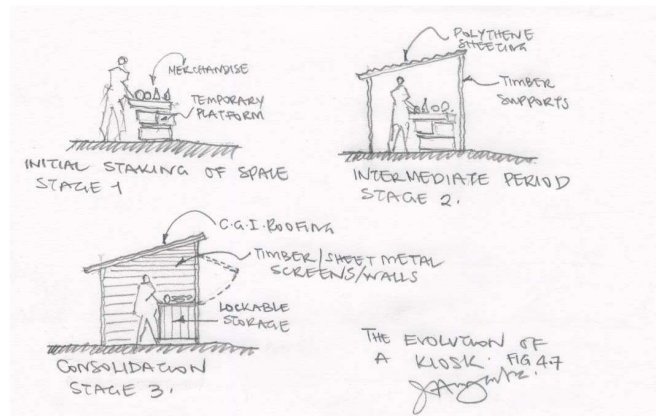 MERCHANDISE
TEMPORARY
PLATFORM
INITIAL STAKING OF SPACE
STAGE 1
POLYTHENE
SHEETING
TIMBER
SUPPORTS
INTERMEDIATE PERIOD
STAGE 2.
C.G.I. ROOFING
TIMBER/SHEET METAL
SCREENS/WALLS
LOCKABLE
STORAGE
CONSOLIDATION
STAGE 3.
THE EVOLUTION OF
A KIOSK. FIG 4.7